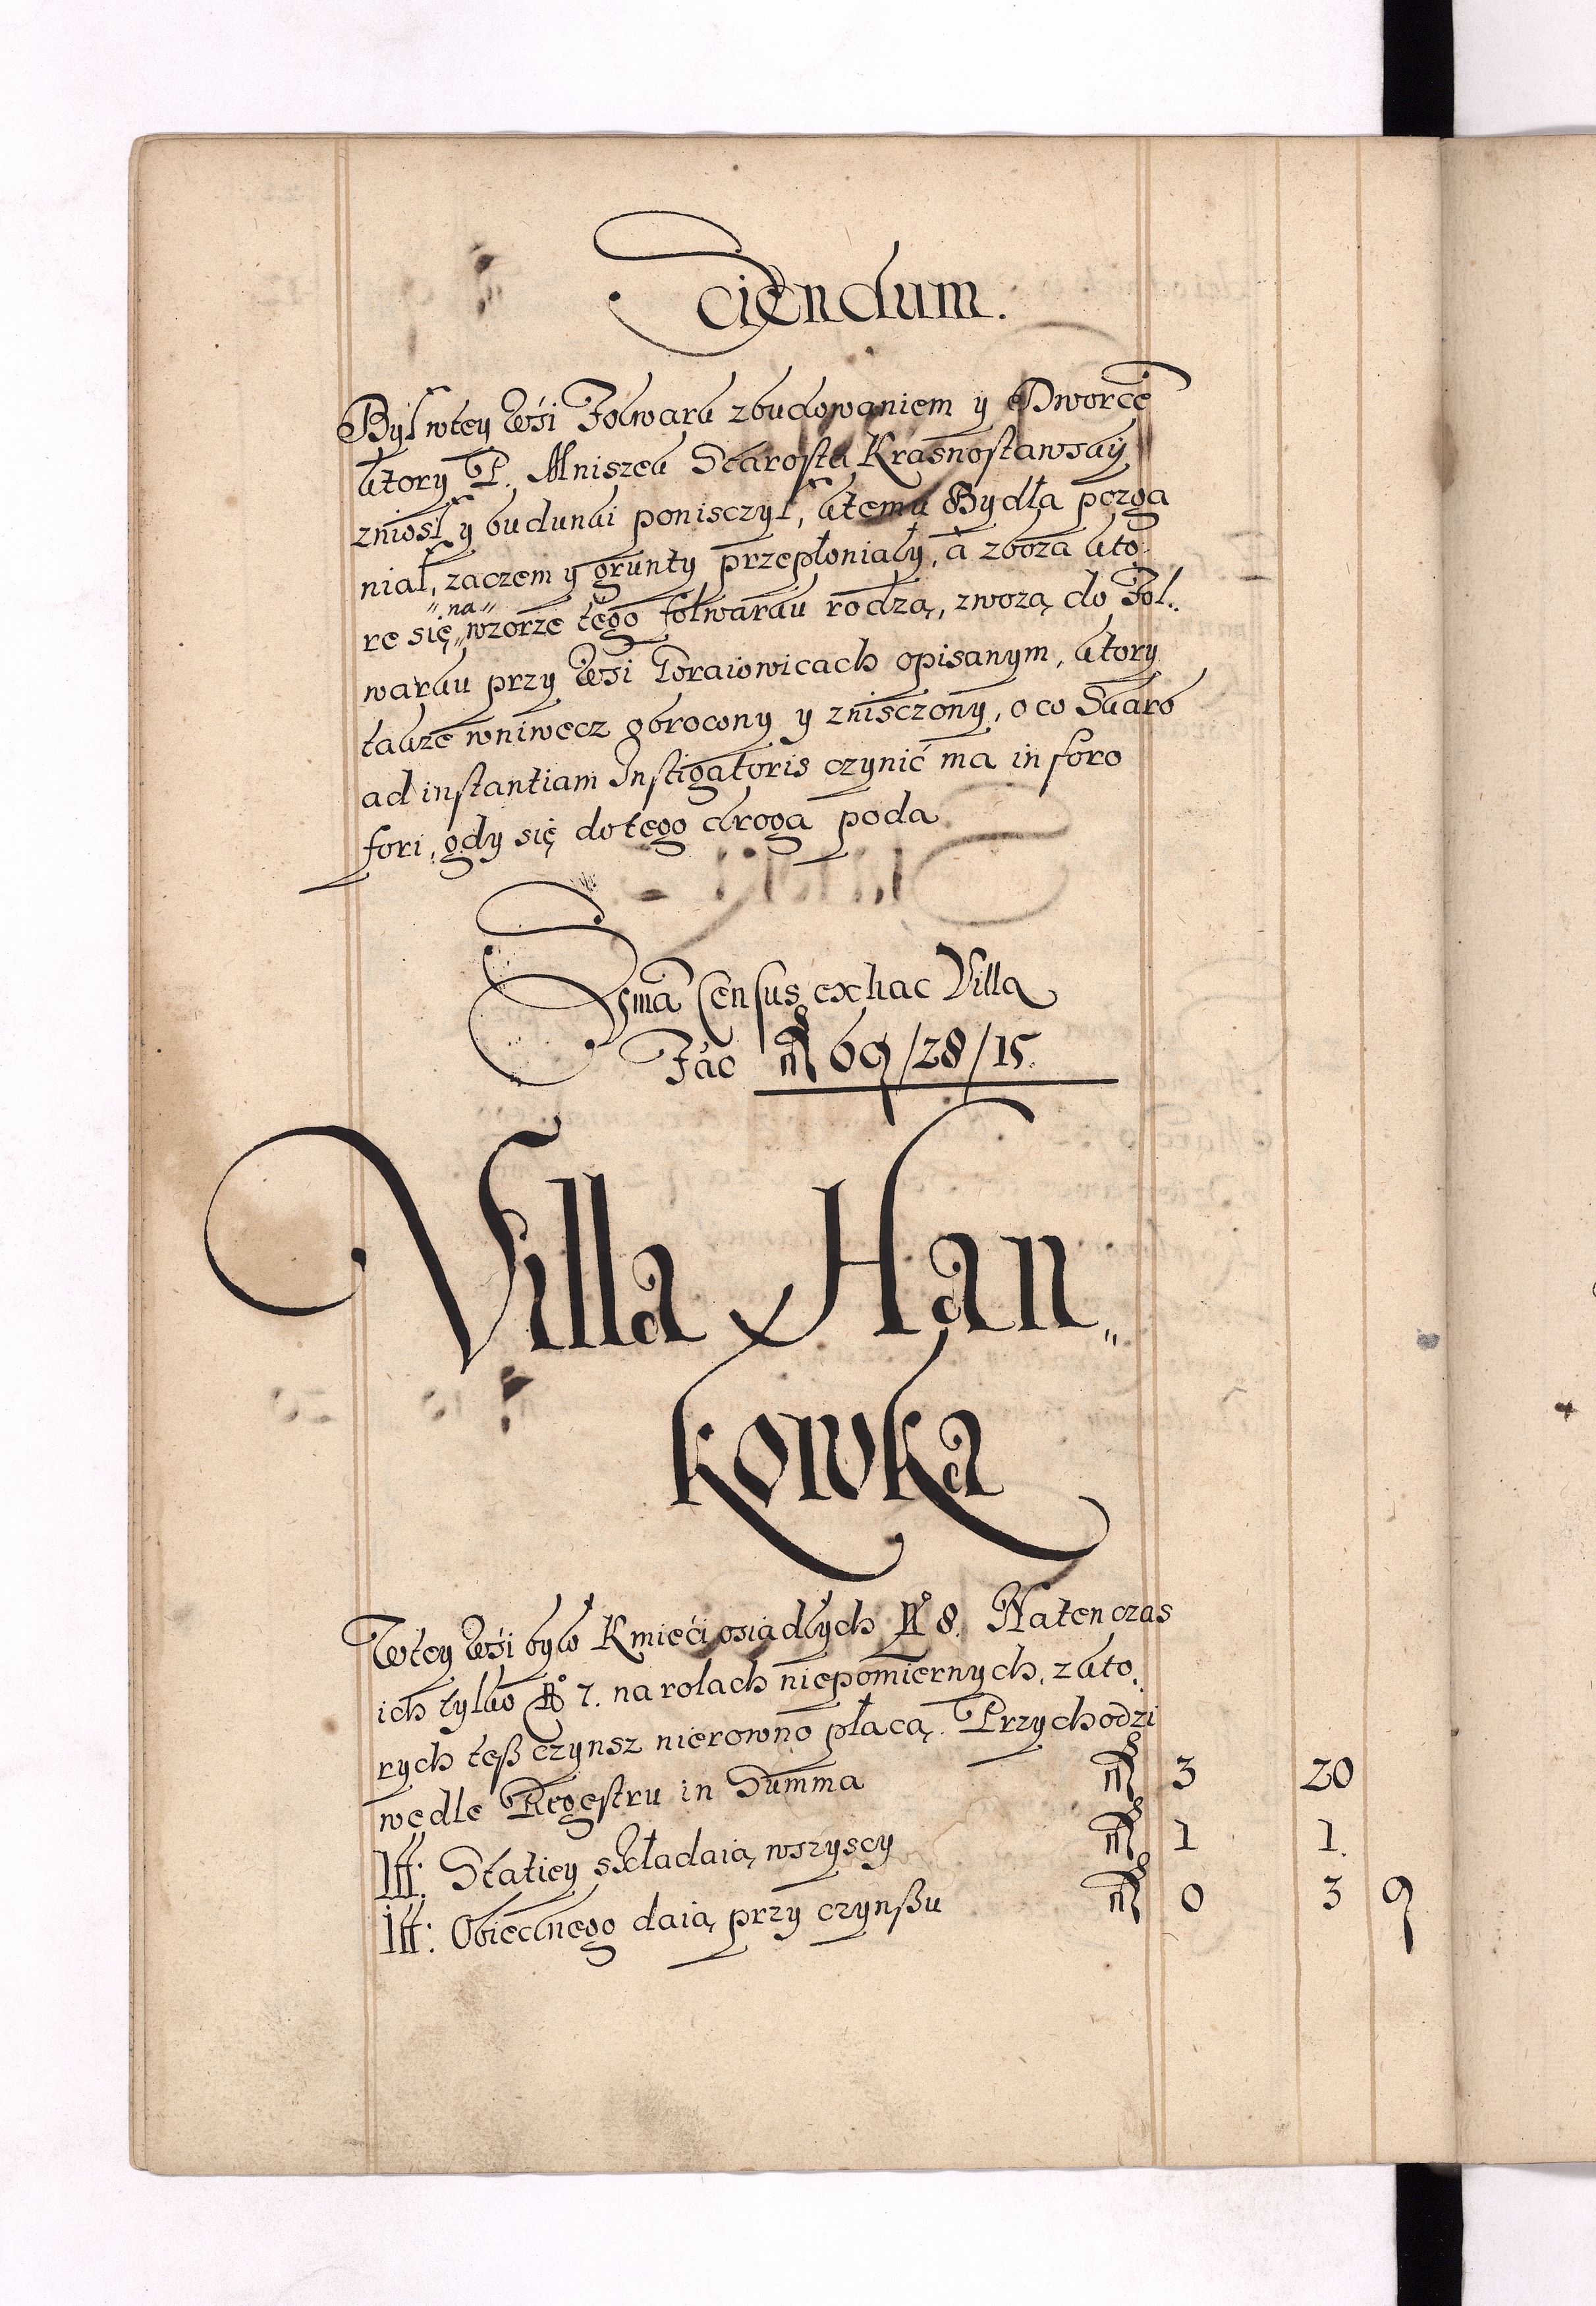 ciendum.
Był wtey Wsi Folwark zbudowaniem y Dworcē
ktory P. Mniszek Starosta Krasnostawskij
zniosł y budunki ponisczył, ktemu Bydła pozga
niał, zaczem y grunty przepłoniały, a zboza kto„
re się „na„ wzorze tego folwarku rodzą, zwozą do Fol„
warku przy Wsi Toraiowicach opisanym, ktory
takze wniwecz obrocony y znisczony, o co Skarb
ad instantiam Instigatoris czynić ma in foro
fori, gdy się do tego droga poda
Sma Census ex hac Villa
Fac fl 69/28/15.
Villa Han„
kowka
Wtey Wsi było Kmieci osiadłych No 8. Natenczas
ich tylko No 7. na rolach niepomiernych, z kto„
rych teß czynsz nierowno płacą. Przychodzi
wedle Regestru in Summa fl 3 20
Itt: Staticy składaią wszyscy fl 1 1.
Itt: Obiednego daią przy czynßu fl 0 3 9